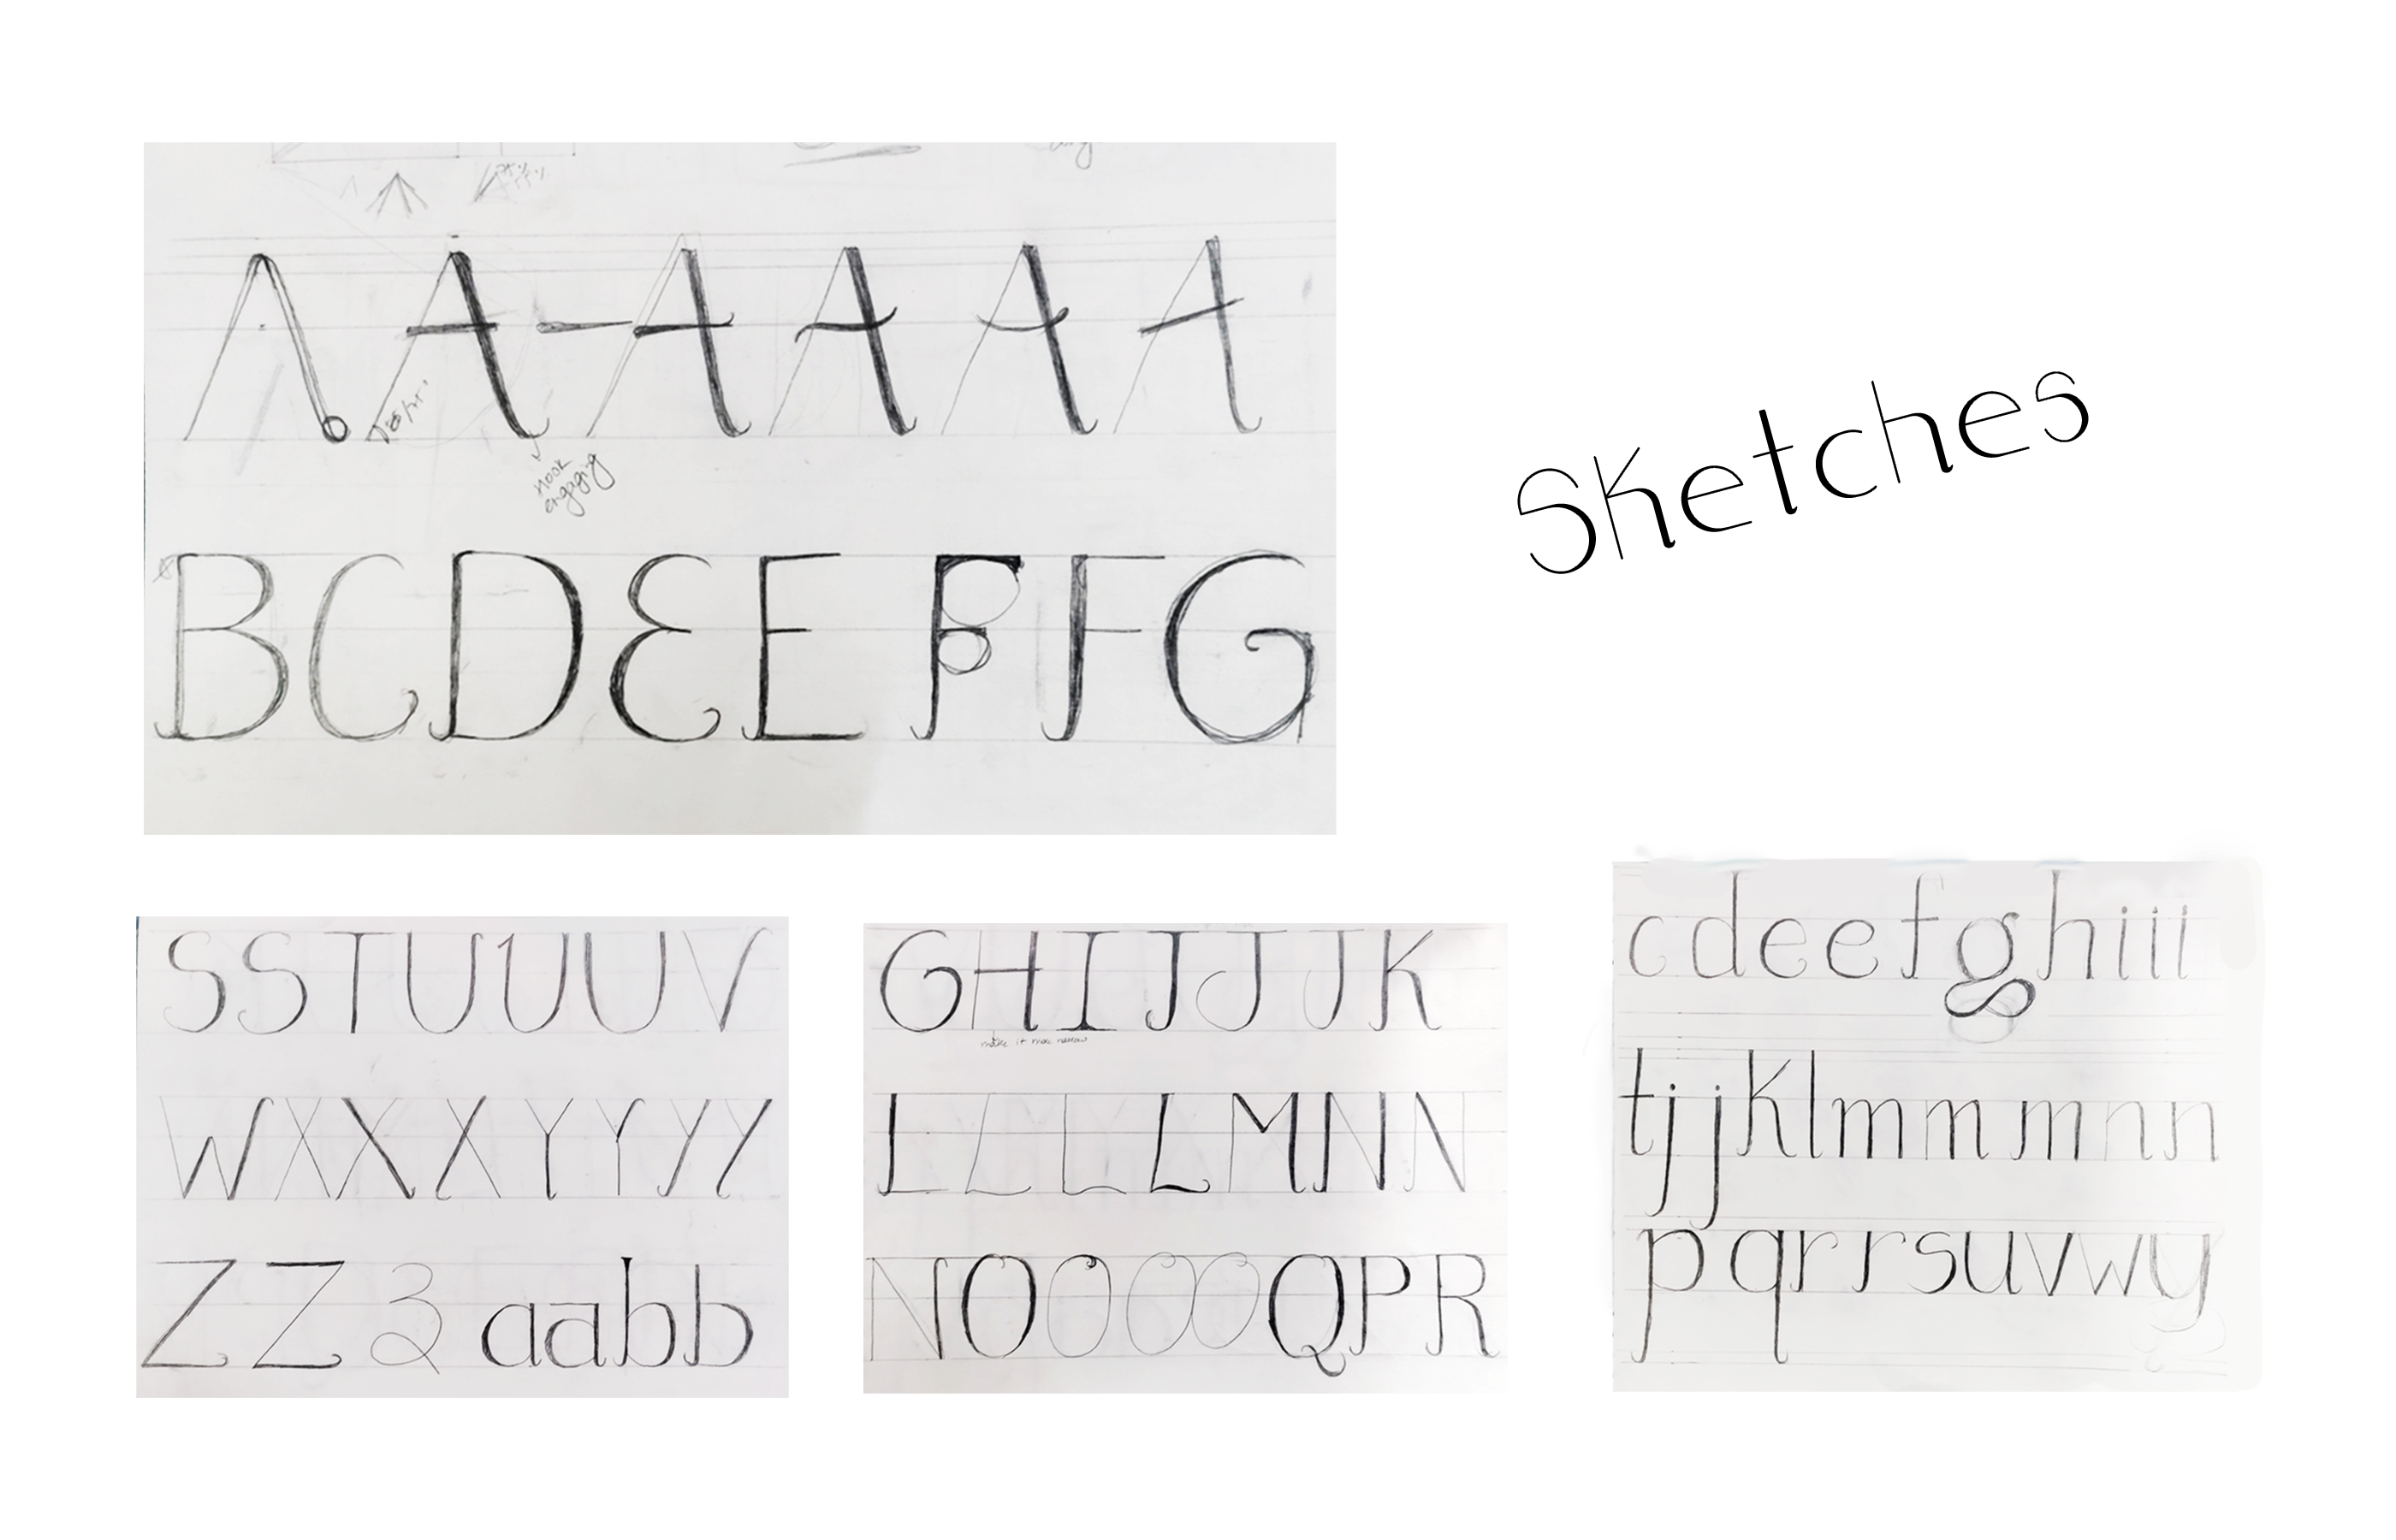 A A - A A A A
hook
engaging
B C D Ɛ E F F G
Sketches
S S T U U U U V
W X X X Y Y Y Y
Z Z 3 a a b b
G H I J J J K
make it more narrow
L L L L M N N
N O O O O Q P R
c d e e f g h i i i
t j j k l m m m n n
p q r r s u v w y